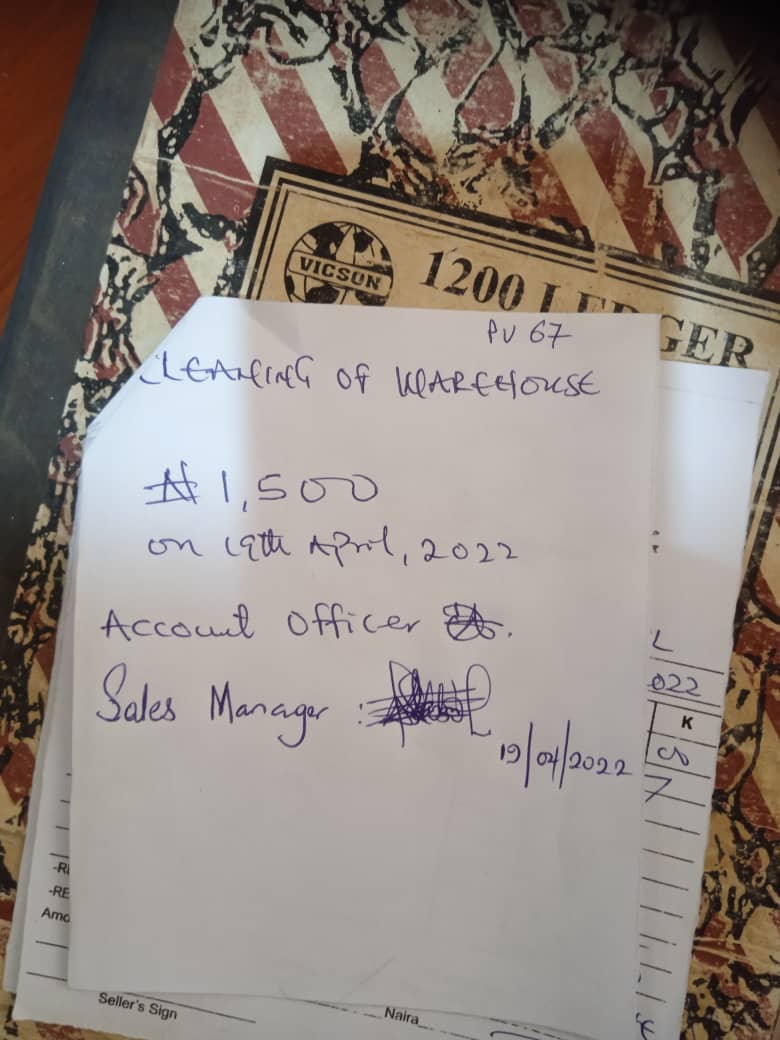 VICSON
1200 LEDGER
PV 67
CLEANING OF WAREHOUSE
₦1,500
on 19th April, 2022
Account Officer
Sales Manager :
19/04/2022
L
022
K
-RE
Amo
Seller's Sign
Naira